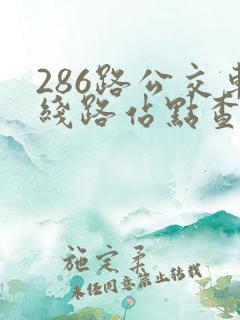 286路公交車
綫路佔點查
施定柔
未任同意禁止转载